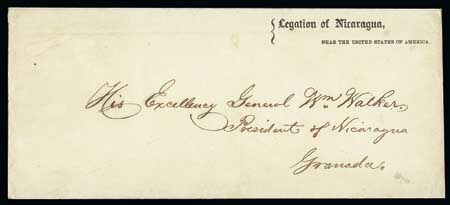 Legation of Nicaragua,
NEAR THE UNITED STATES OF AMERICA.
His Excellency General Wm. Walker,
President of Nicaragua
Granada.